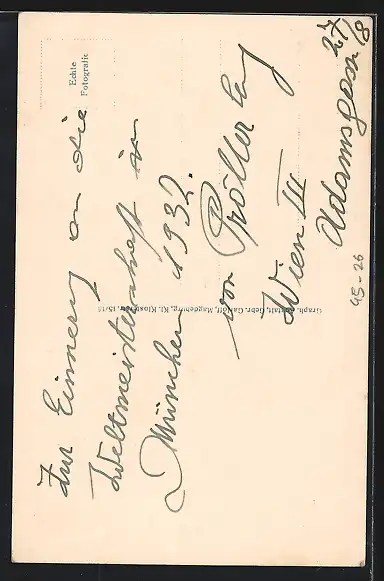 Echte
Fotografie
Zur Erinnerung an die
Weltmeisterschaft in
München 1932.
von Pröller
Wien III
Adamsgasse 27/8
Graph. Anstalt, Gebr. Garloff, Magdeburg, Kl. Klosterstr. 15/16
95-26